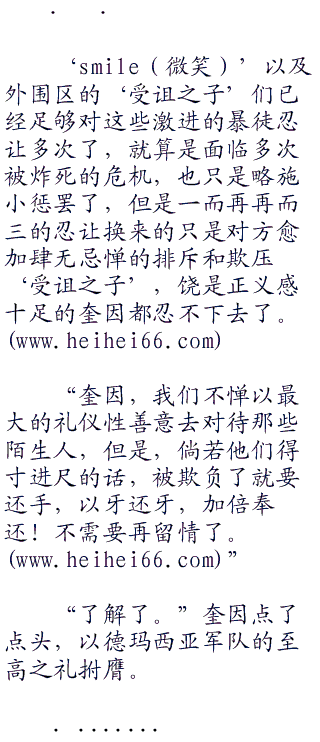 . .
‘smile（微笑）’以及
外围区的‘受诅之子’们已
经足够对这些激进的暴徒忍
让多次了，就算是面临多次
被炸死的危机，也只是略施
小惩罢了，但是一而再再而
三的忍让换来的只是对方愈
加肆无忌惮的排斥和欺压
‘受诅之子’，饶是正义感
十足的奎因都忍不下去了。
(www.heihei66.com)
“奎因，我们不惮以最
大的礼仪性善意去对待那些
陌生人，但是，倘若他们得
寸进尺的话，被欺负了就要
还手，以牙还牙，加倍奉
还！不需要再留情了。
(www.heihei66.com)”
“了解了。”奎因点了
点头，以德玛西亚军队的至
高之礼拊膺。
. .......